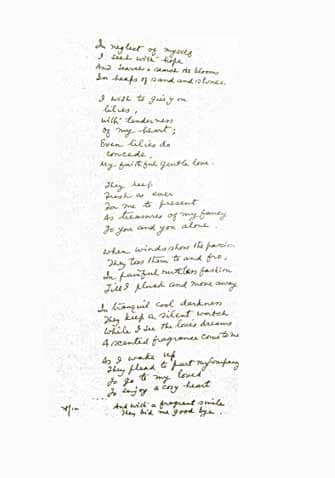 In neglect of myself
I seek with hope
And search & search the blooms
In heaps of sand and stones.
I wish to give you
lilies,
With tenderness
of my heart;
Even lilies do
concede,
My faithful gentle love.
They keep
Fresh as ever
For me to present
As treasures of my fancy
To you and you alone.
When winds show the passion
They toss them to and fro,
In painful ruthless fashion
Till I pluck and move away
In tranquil cool darkness
They keep a silent watch
While I see the loves dreams
A scented fragrance come to me
As I wake up
They plead to part my company
To go to my loved
To enjoy a cosy heart
And with a fragrant smile
They bid me good bye.